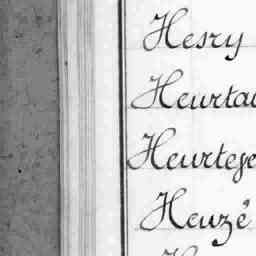 Hesry
Heurtau
Heurteje
Heuzé